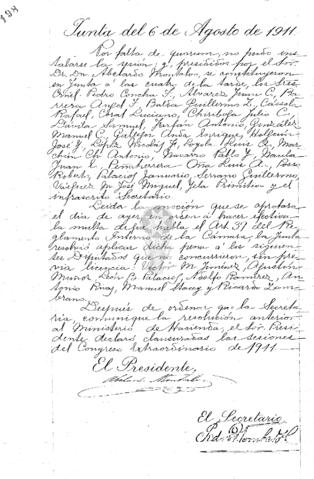 198
Junta del 6 de Agosto de 1911.
Por falta de quorum, no pudo ins-
talarse la sesión, y, presididos por el Sor.
Dr. Dn. Abelardo Montalvo, se constituyeron
en Junta á las cuatro de la tarde, los tres
Pedro Concha J., Alvarez Juan C., Ba-
rrera Angel F., Balda Guillermo L.,
Rafael, Coral Luciano, Chiriboga Julio C.
Dávila Samuel, Farfán Antonio, González
Manuel C., Gallegos Anda Enrique, Holguín
José J., López Nicolás F., Loyola Luis A., Mar-
Ch. Antonio, Navarro Pablo J., Navila
Juan L., Ojeda Luis A.,
Robert, Palacios Januario, Serrano Guillermo,
Vásquez Dr. José Miguel, Yela Primitivo y el
infrascrito Secretario.
Leída la moción que se aprobara
el día de ayer, en orden á hacer efectiva
la multa de que habla el Art. 31 del Re-
glamento Interno de la Cámara, la Junta
resolvió aplicar dicha pena á los siguien-
tes Diputados que no concurrieron, sin pre-
via licencia: Victor M. Jiménez, Agustín
Muñoz, León B. Palacios, Nicolás Ramírez, An-
tonio Ruiz, Manuel Stacey y Ricardo Zam-
brano.
Después de ordenar que la Secreta-
ría, comunique la resolución anterior
al Ministerio de Hacienda, el Sor. Presi-
dente declaró clausuradas las sesiones
del Congreso Extraordinario de 1911.
El Presidente,
Abelardo Montalvo
El Secretario